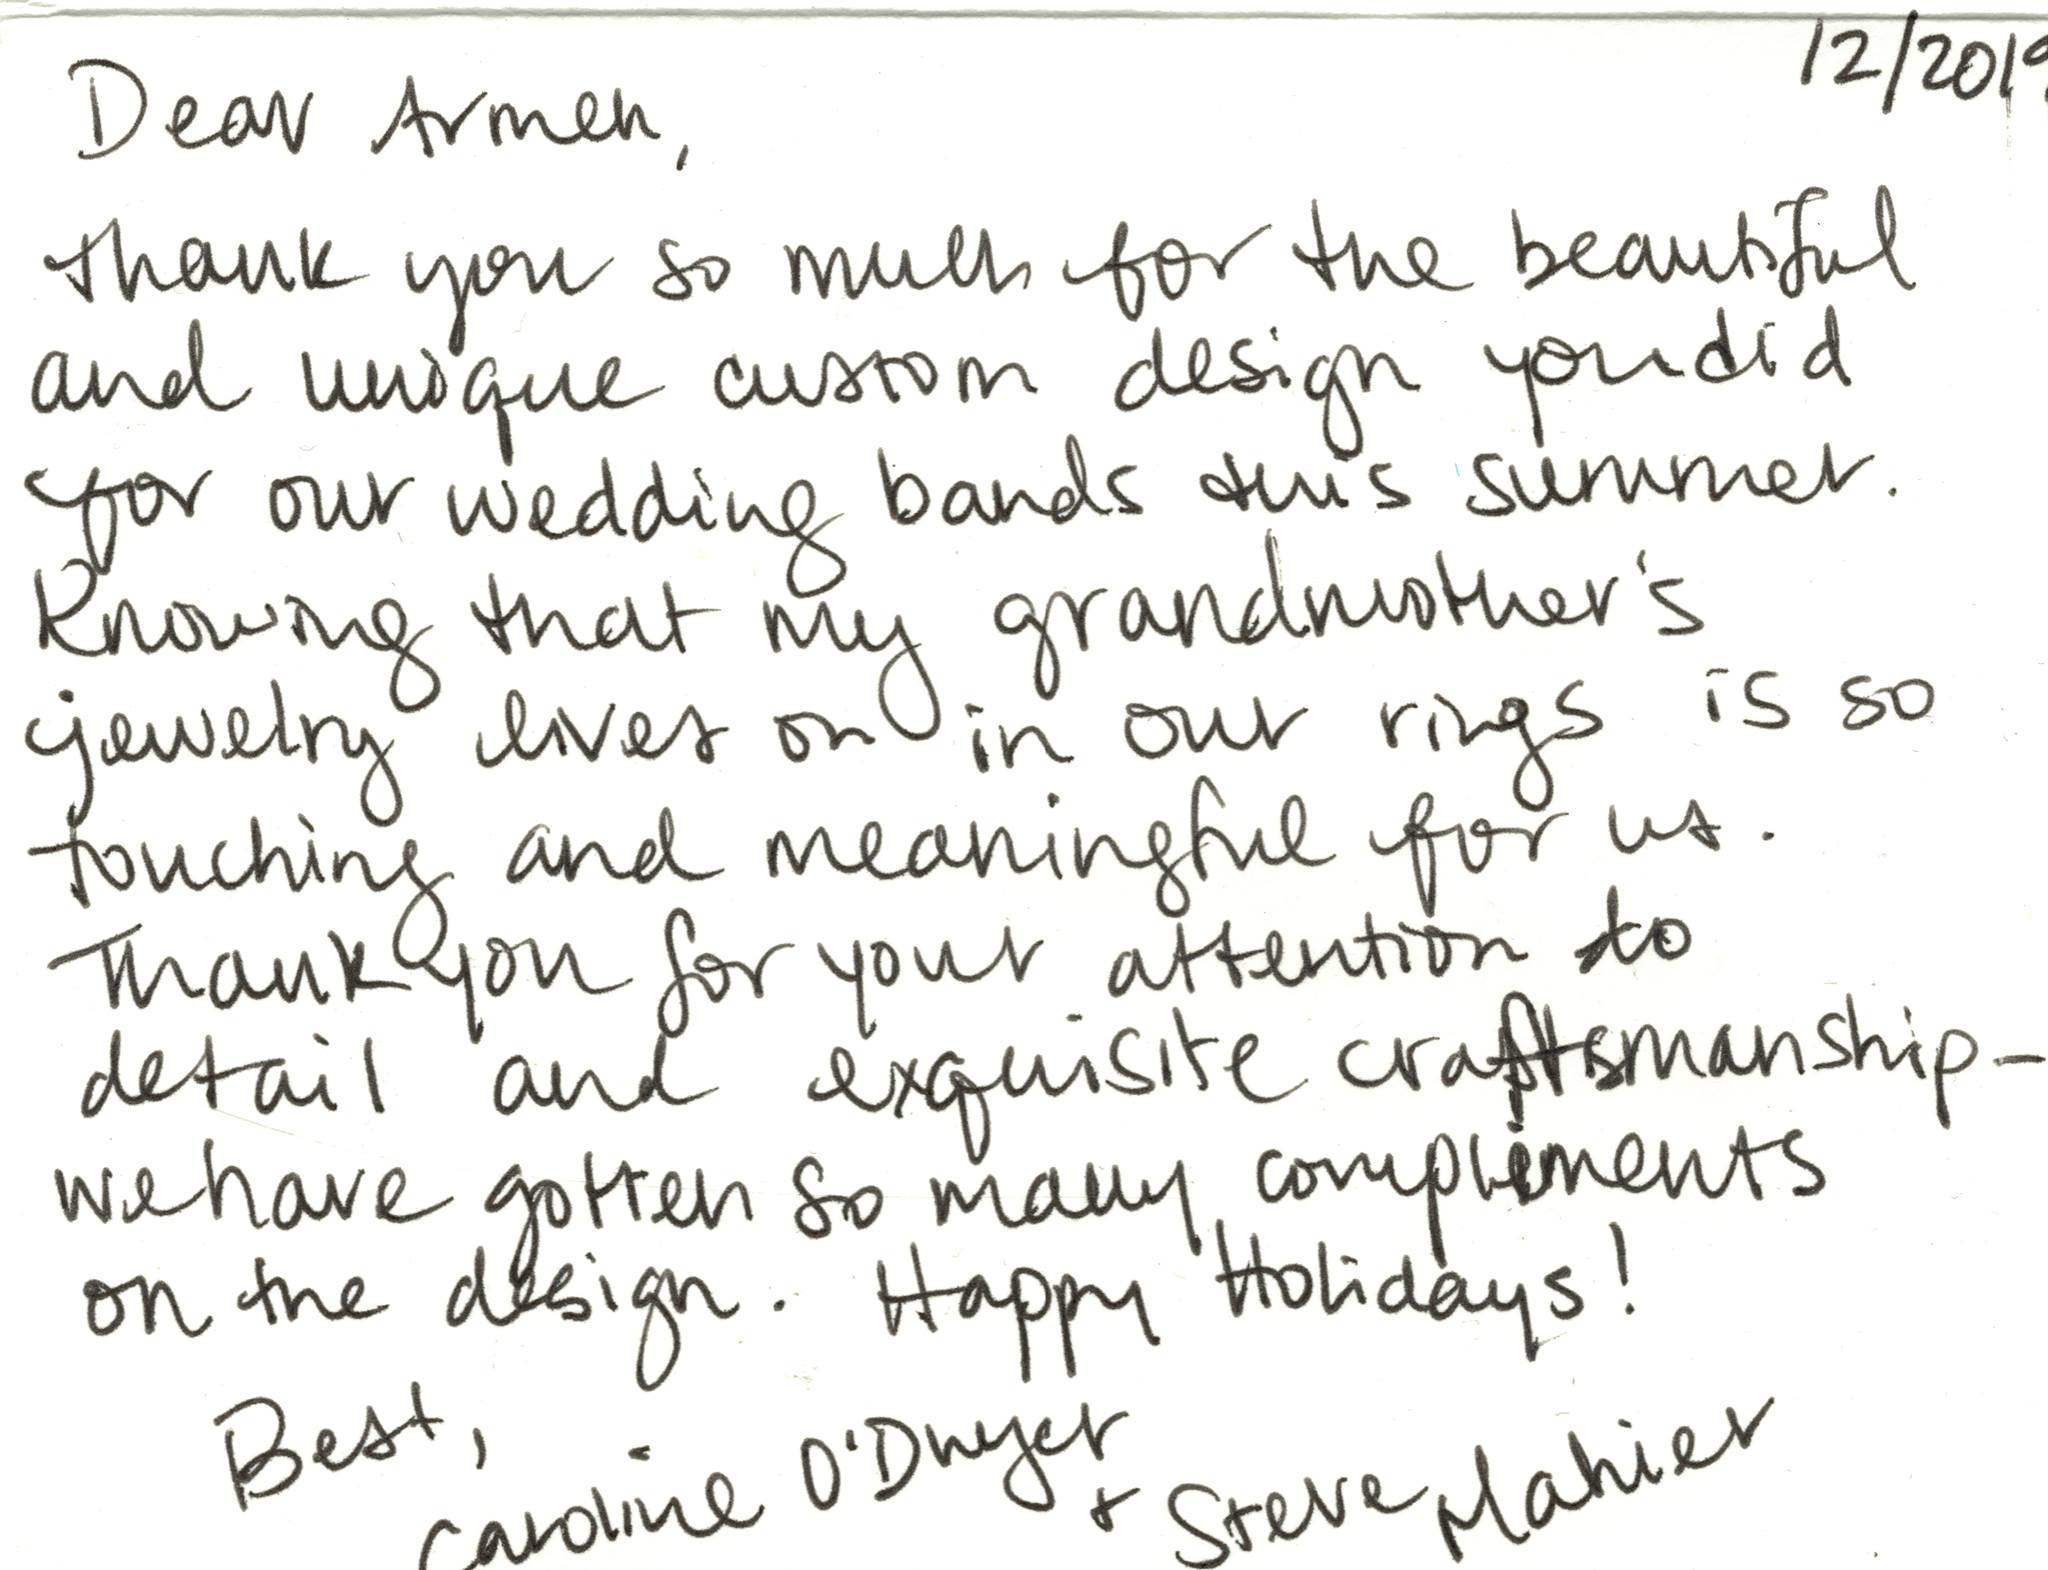 12/2019
Dear Armen,
Thank you so much for the beautiful
and unique custom design you did
for our wedding bands this summer.
Knowing that my grandmother's
jewelry lives on in our rings is so
touching and meaningful for us.
Thank you for your attention to
detail and exquisite craftsmanship-
we have gotten so many compliments
on the design. Happy Holidays!
Best,
Caroline O'Dwyer
+ Steve Mahier